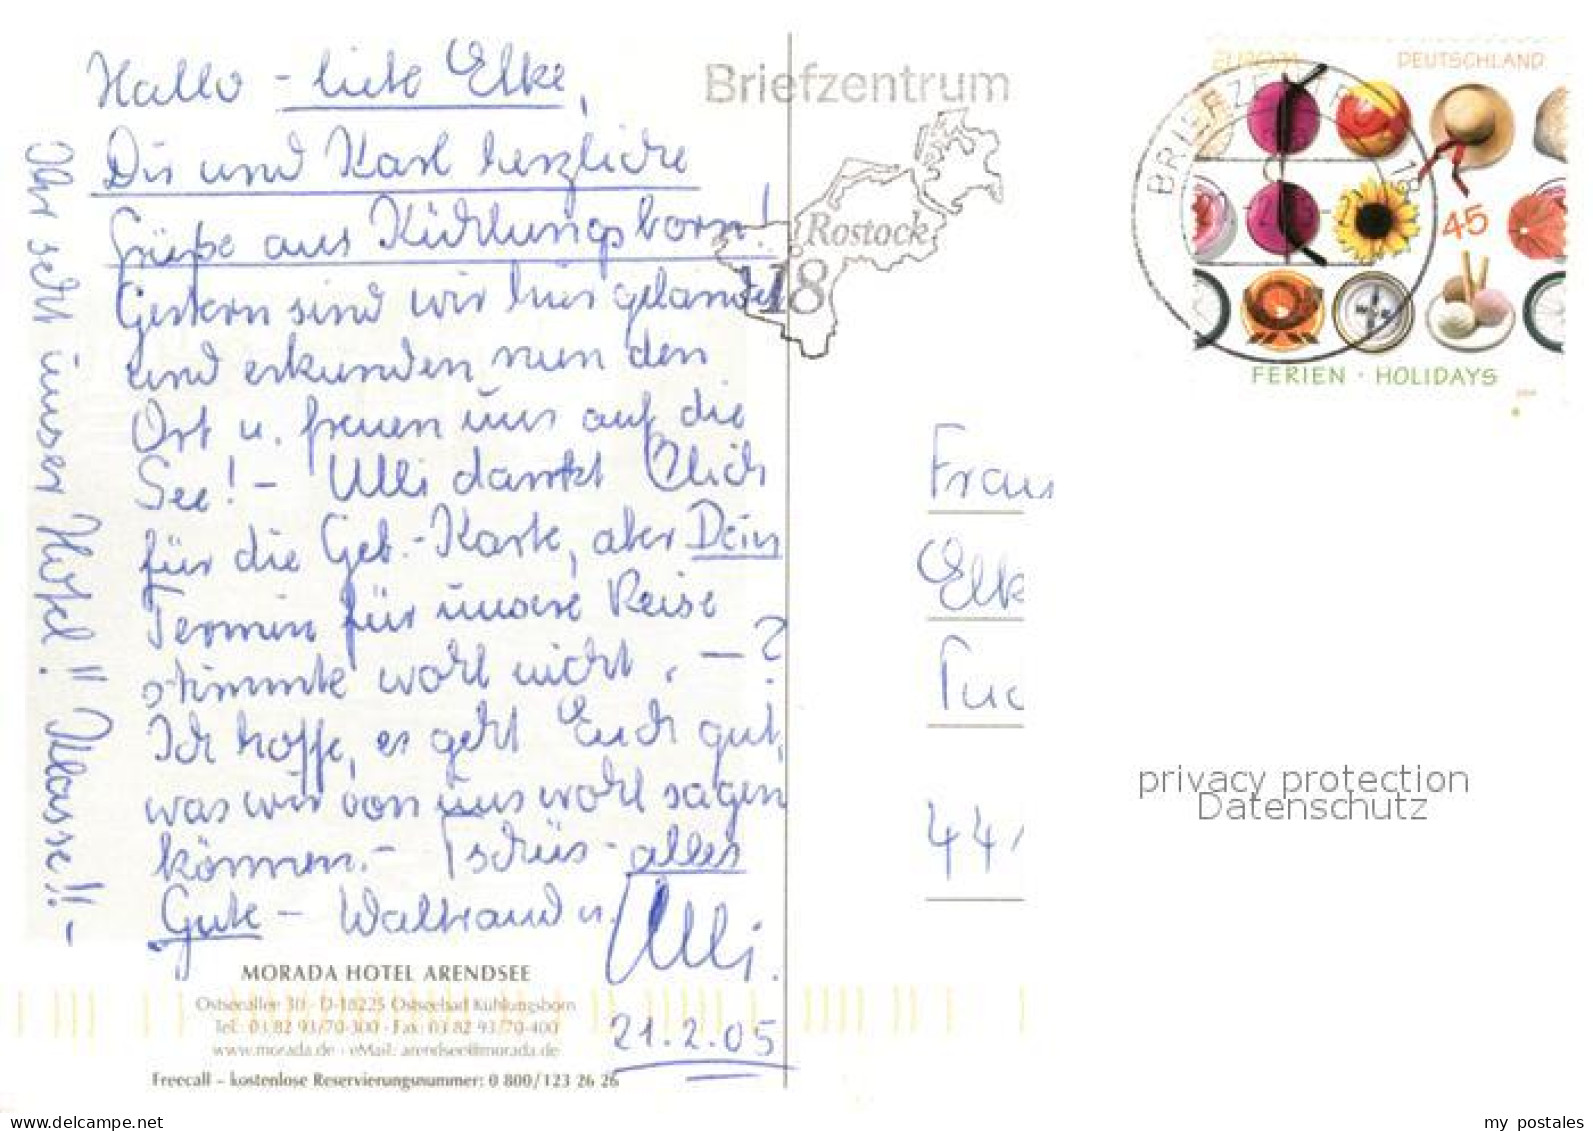 Hallo - liebe Elke,
Dir und Karl herzliche
Grüße aus Kühlungsborn!
Gestern sind wir hier gelandet
und erkunden nun den
Ort u. freuen uns auf die
See! - Ulli dankt Dich
für die Geb.-Karte, aber Dein
Termin für unsere Reise
stimmte wohl nicht. - ?
Ich hoffe, es geht Euch gut,
was wir von uns wohl sagen
können. - Tschüs - alles
Gute - Waltraud u.
Ulli.
21.2.05
Ihr seht unser Hotel!! Klasse!! -
MORADA HOTEL ARENDSEE
Ostseeallee 30 · D-18225 Ostseebad Kühlungsborn
Tel.: 03 82 93/70-300 · Fax: 03 82 93/70-400
www.morada.de · eMail: arendsee@morada.de
Freecall – kostenlose Reservierungsnummer: 0 800/123 26 26
Briefzentrum
Rostock
18
BRIEFZENTRUM 18
EUROPA DEUTSCHLAND
45
FERIEN · HOLIDAYS
Frau
Elk
44
privacy protection
Datenschutz
www.delcampe.net
my_postales